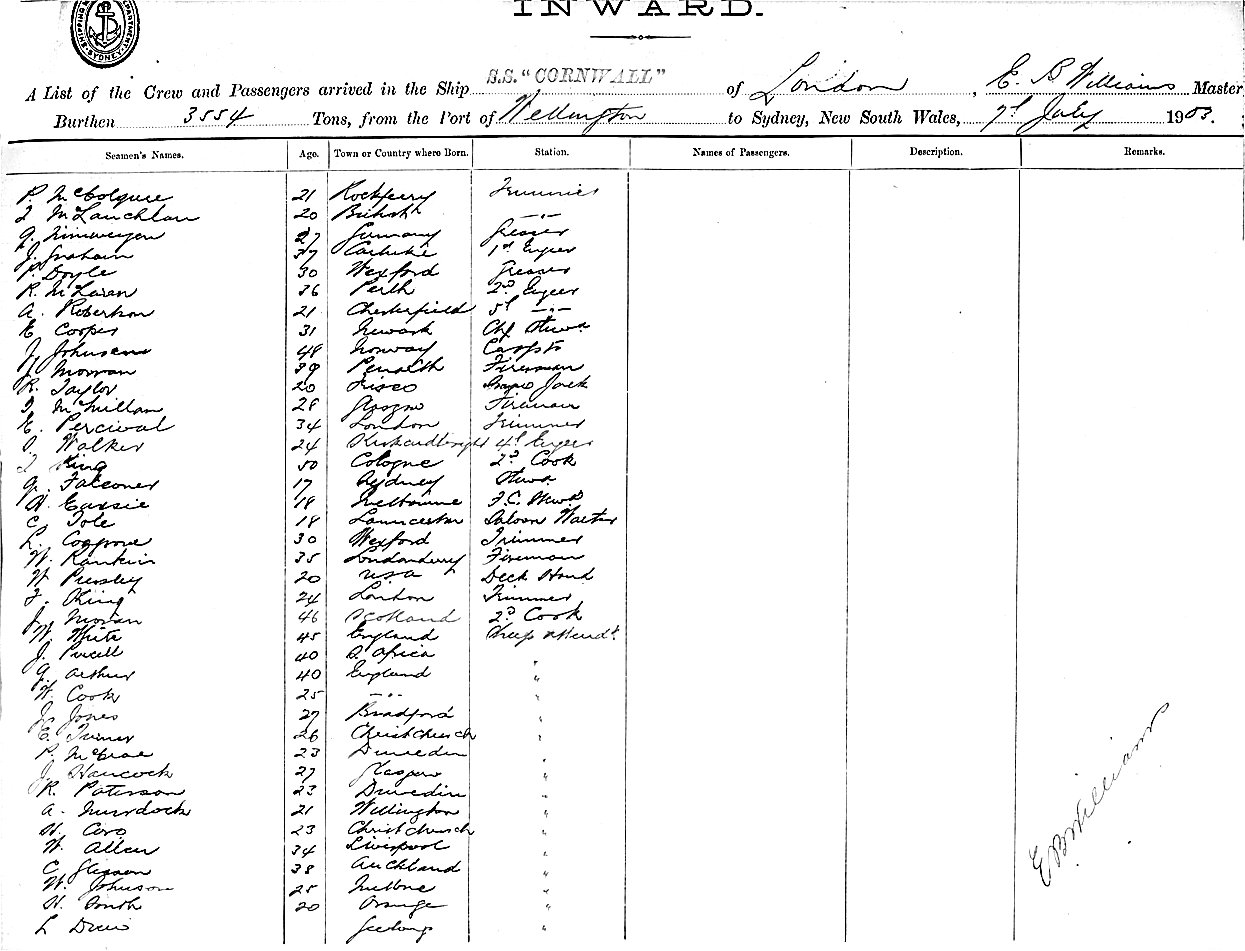 SHIPPING DEPARTMENT SYDNEY
INWARD.
A List of the Crew and Passengers arrived in the Ship S.S. "CORNWALL" of London, E. B Williams Master
Burthen 3554 Tons, from the Port of Wellington to Sydney, New South Wales, 7th July 1903.
Seamen's Names. Age. Town or Country where Born. Station. Names of Passengers. Description. Remarks.
P. 21 Rockferry
McLauchlan 20 British —"—
27 Germany Greaser
J. Graham 37 Carlisle 1st
P. Doyle 30 Wexford Greaser
R. McLaren 36 Perth 2nd
A. Robertson 21 Chesterfield 5th —"—
E Cooper 31 Newark
J. Johnsen 48 Norway
39 Penarth Fireman
R. Taylor 20 Frisco Jack
McMillan 28 Glasgow Fireman
E. Percival 34 London Trimmer
Walker 24 Kirkcudbright 4th
King 50 Cologne 2nd Cook
G. Falconer 17 Sydney
Cassie 18 Melbourne
C. Tole 18 Launceston Saloon Waiter
L. Cosgrove 30 Wexford Trimmer
W. Rankin 35 Londonderry Fireman
W Pressley 20 USA Deck Hand
F. King 24 London Trimmer
J. 46 Scotland 2nd Cook
W. White 45 England Sheep attendt
J. Purcell 40 S. Africa "
G. Arthur 40 England "
W. Cook 25 —"— "
J. Jones 27 Bradford "
E. Turner 26 Christchurch "
P. McCrae 23 Dunedin "
J. Hancock 27 Glasgow "
R. Paterson 23 Dunedin "
A. Murdock 21 Wellington "
23 Christchurch "
W. Allen 34 Liverpool "
C. Gleeson 38 Auckland "
W. Johnson 25 "
20 Orange "
L Geelong "
E B Williams